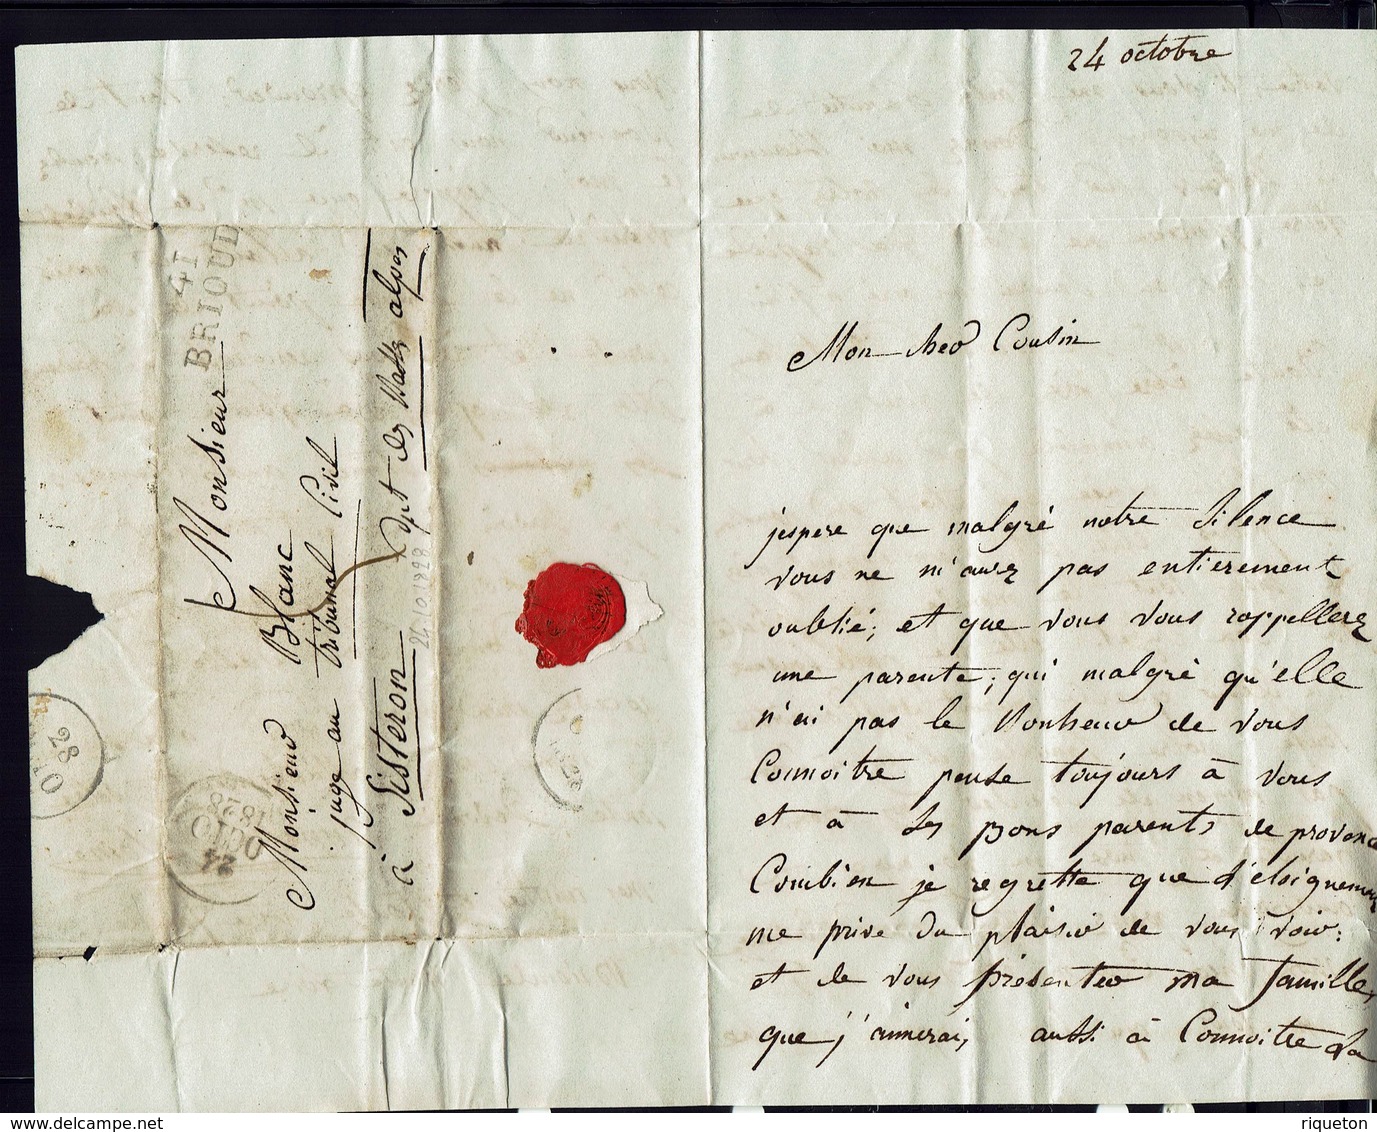 24 octobre
41
BRIOUDE
Monsieur
Monsieur Blanc
juge au tribunal Civil
à Sisteron dpt des Basses alpes
24.10.1828
24
OCTO
1828
28
Mon cher Cousin
j'espere que malgré notre silence
vous ne m'aurez pas entierement
oublié; et que vous vous rappellerez
une parente, qui malgré qu'elle
n'ai pas le Bonheur de vous
Connoitre pense toujours à vous
et à ses Bons parents de provence
Combien je regrette que l'eloignement
me prive du plaisir de vous voir:
et de vous presenter ma famille,
que j'aimerai, aussi à Connoitre la
www.delcampe.net
riqueton